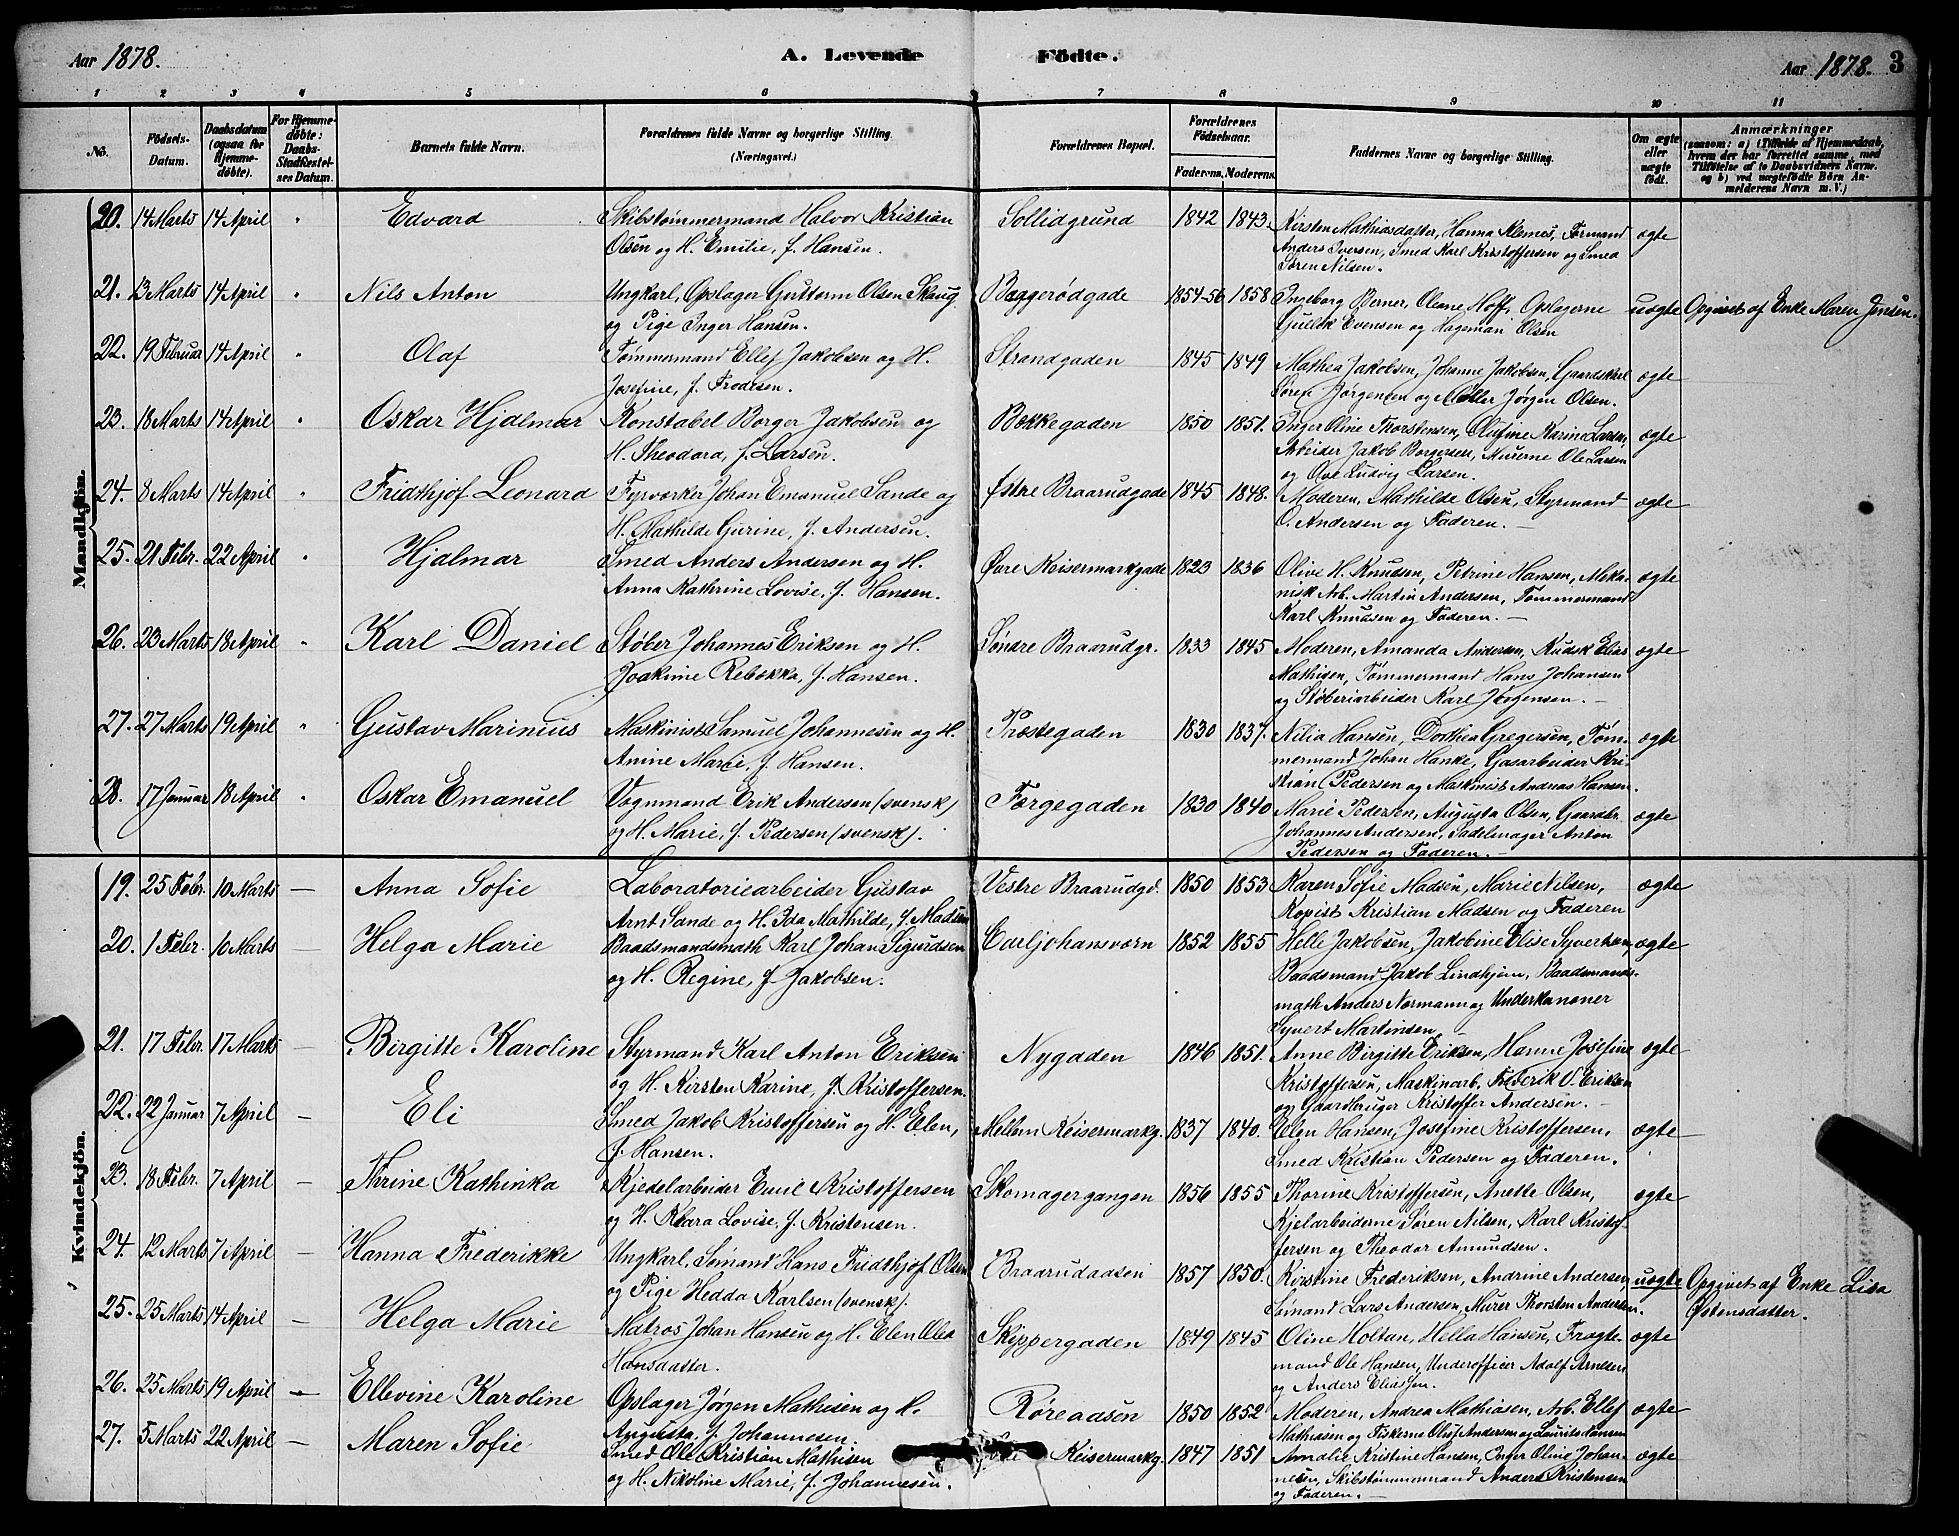 Aar 1878.
A. Levende Födte.
Aar 1878. 3
1 2 3 4 5 6 7 8 9 10 11
No.
Födsels-Datum.
Daabsdatum (ogsaa for Hjemme-döbte).
For Hjemme-döbte: Daabs-Stadfæstel-ses Datum.
Barnets fulde Navn.
Forældrenes fulde Navne og borgerlige Stilling.
(Næringsvei.)
Forældrenes Bopæl.
Forældrenes Födselsaar.
Faderens. Moderens.
Faddernes Navne og borgerlige Stilling.
Om ægte eller uægte födt.
Anmærkninger
(saasom: a) i Tilfælde af Hjemmedaab, hvem der har forrettet samme, med Tilföielse af to Daabsvidners Navne, og b) ved uægtefödte Börn An-melderens Navn m. V.)
Mandkjön.
20. 14 Marts 14 April " Edvard Skibstømmermand Halvor Kristian Sollidgrund 1842 1843. Kirsten Mathiasdatter, Hanna Klemes, Formand ægte
Olsen og H. Emilie, f. Hansen. Anders Iversen, Smed Karl Kristoffersen og Smed
Søren Nilsen.
21. 13 Marts 14 April " Nils Anton Ungkarl, Opslager Guttorm Olsen Skaug Baggerødgade 1854-56 1858 Ingeborg Berner, Oleane Hoff, Opslagerne uægte Opgivet af Enke Maren Jensen.
og Pige Inger Hansen. Gulik Evensen og Hageman Olsen
22. 19 Februar 14 April " Olaf Tømmermand Ellef Jakobsen og H. Strandgaden 1845 1849 Mathea Jakobsen, Johanne Jakobsen, Gaardskarl ægte
Josefine, f. Frodesen. Søren Jørgensen og Møller Jørgen Olsen.
23. 18 Marts 14 April " Oskar Hjalmar Konstabel Borger Jakobsen og Bækkegaden 1850 1851. Inger Oline Thorstensen, Olufine Karine Larsen, ægte
H. Theodora, f. Larsen. Arbeider Jakob Borgersen, Murerne Ole Larsen
og Ove Ludvig Larsen.
24. 8 Marts 14 April " Fridthjof Leonard Fyrværker Johan Emanuel Sande og Østre Braarudgade 1845 1848. Moderen, Mathilde Olsen, Styrmand ægte
H. Mathilde Gurine, f. Andersen. O. Andersen og Faderen. —
25. 21 Febr. 22 April " Hjalmar Smed Anders Andersen og H. Øvre Keisermarkgade 1823 1836 Olive H. Knudsen, Petrine Hansen, Meka- ægte
Anna Kathrine Lovise, f. Hansen. nisk Arb. Martin Andersen, Tømmermand
Karl Knudsen og Faderen. —
26. 23 Marts 18 April " Karl Daniel Støber Johannes Eriksen og H. Søndre Braarudgr. 1833 1845 Moderen, Amanda Andersen, Kudsk Elias ægte
Joakime Rebekka, f. Hansen. Mathisen, Tømmermand Hans Johansen
og Støberiarbeider Karl Jørgensen. —
27. 27 Marts 19 April " Gustav Marinius Maskinist Samuel Johannesen og H. Præstegaden 1830 1837. Nilia Hansen, Dorthea Gregersen, Tøm- ægte
Anine Marie, f. Hansen. mermand Johan Hanke, Gasarbeider Kri-
stian Pedersen og Maskinist Andreas Hansen.
28. 17 Januar 18 April " Oskar Emanuel Vognmand Erik Andersen (svensk) Færgegaden 1830 1840 Marie Pedersen, Augusta Olsen, Gaardbr. ægte
og H. Marie, f. Pedersen (svensk). Johannes Andersen, Sadelmager Anton
Pedersen og Faderen. —
Kvindekjön.
19. 25 Febr. 10 Marts — Anna Sofie Laboratoriearbeider Gustav Vestre Braarudgd. 1850 1853 Karen Sofie Madsen, Marie Nilsen, ægte
Arnt Sande og H. Ida Mathilde, f. Madsen Kopist Kristian Madsen og Faderen
20. 1 Febr. 10 Marts — Helga Marie Baadsmandsmath Karl Johan Sigurdsen Carljohansværn 1852 1855 Helle Jakobsen, Jakobine Elise Syvertsen, ægte
og H. Regine, f. Jakobsen. Baadsmand Jakob Lindhjem, Baadsmands-
math Anders Normann og Underkanoner
Syvert Martinsen —
21. 17 Febr. 17 Marts — Birgitte Karoline Styrmand Karl Anton Eriksen Nygaden 1846 1851. Anne Birgitte Eriksen, Hanne Josefine ægte
og H. Kirsten Karine, f. Kristoffersen. Kristoffersen, Maskinarb. Frederik O. Eriksen
og Gaardbruger Kristoffer Andersen. —
22. 22 Januar 7 April — Eli Smed Jakob Kristoffersen og H. Elen, Mellem Keisermarkg. 1837 1840. Elen Hansen, Josefine Kristoffersen, ægte
f. Hansen. Smed Kristian Pedersen og Faderen.
23. 18 Febr. 7 April — Thrine Kathinka Kjedelarbeider Emil Kristoffersen Skomagergangen 1856 1855 Thorine Kristoffersen, Anette Olsen, ægte
og H. Klara Lovise, f. Kristensen. Kjelarbeiderne Søren Nilsen, Karl Kristof-
fersen og Theodor Amundsen.
24. 12 Marts 7 April — Hanna Frederikke Ungkarl, Sømand Hans Fridthjof Olsen Braarudaasen 1857 1850. Kirstine Frederiksen, Andrine Andersen, uægte Opgivet af Enke Lisa
og Pige Hedda Karlsen (svensk). Sømand Lars Andersen, Murer Thorsten Andersen. Østensdatter.
25. 25 Marts 14 April — Helga Marie Matros Johan Hansen og H. Elen Olea Skippergaden 1849 1845 Oline Holtan, Hella Hansen, Fragte- ægte
Hansdatter. mand Ole Hansen, Underofficer Adolf Arnesen
og Anders Eliassen.
26. 25 Marts 19 April — Ellevine Karoline Opslager Jørgen Mathisen og H. Røreaasen 1850 1852 Moderen, Andrea Mathiasen, Arb. Ellef ægte
Augusta, f. Johannesen. Mathiasen og Fiskerne Oluf Andersen og Laurits Hansen
27. 5 Marts 22 April — Maren Sofie Smed Ole Kristian Mathisen Keisermarkg. 1847 1851 Amalie Kristine Hansen, Inger Oline Johan- ægte
og H. Nikoline Marie, f. Johannesen. nesen, Skibstømmermand Anders Kristensen
og Faderen. —